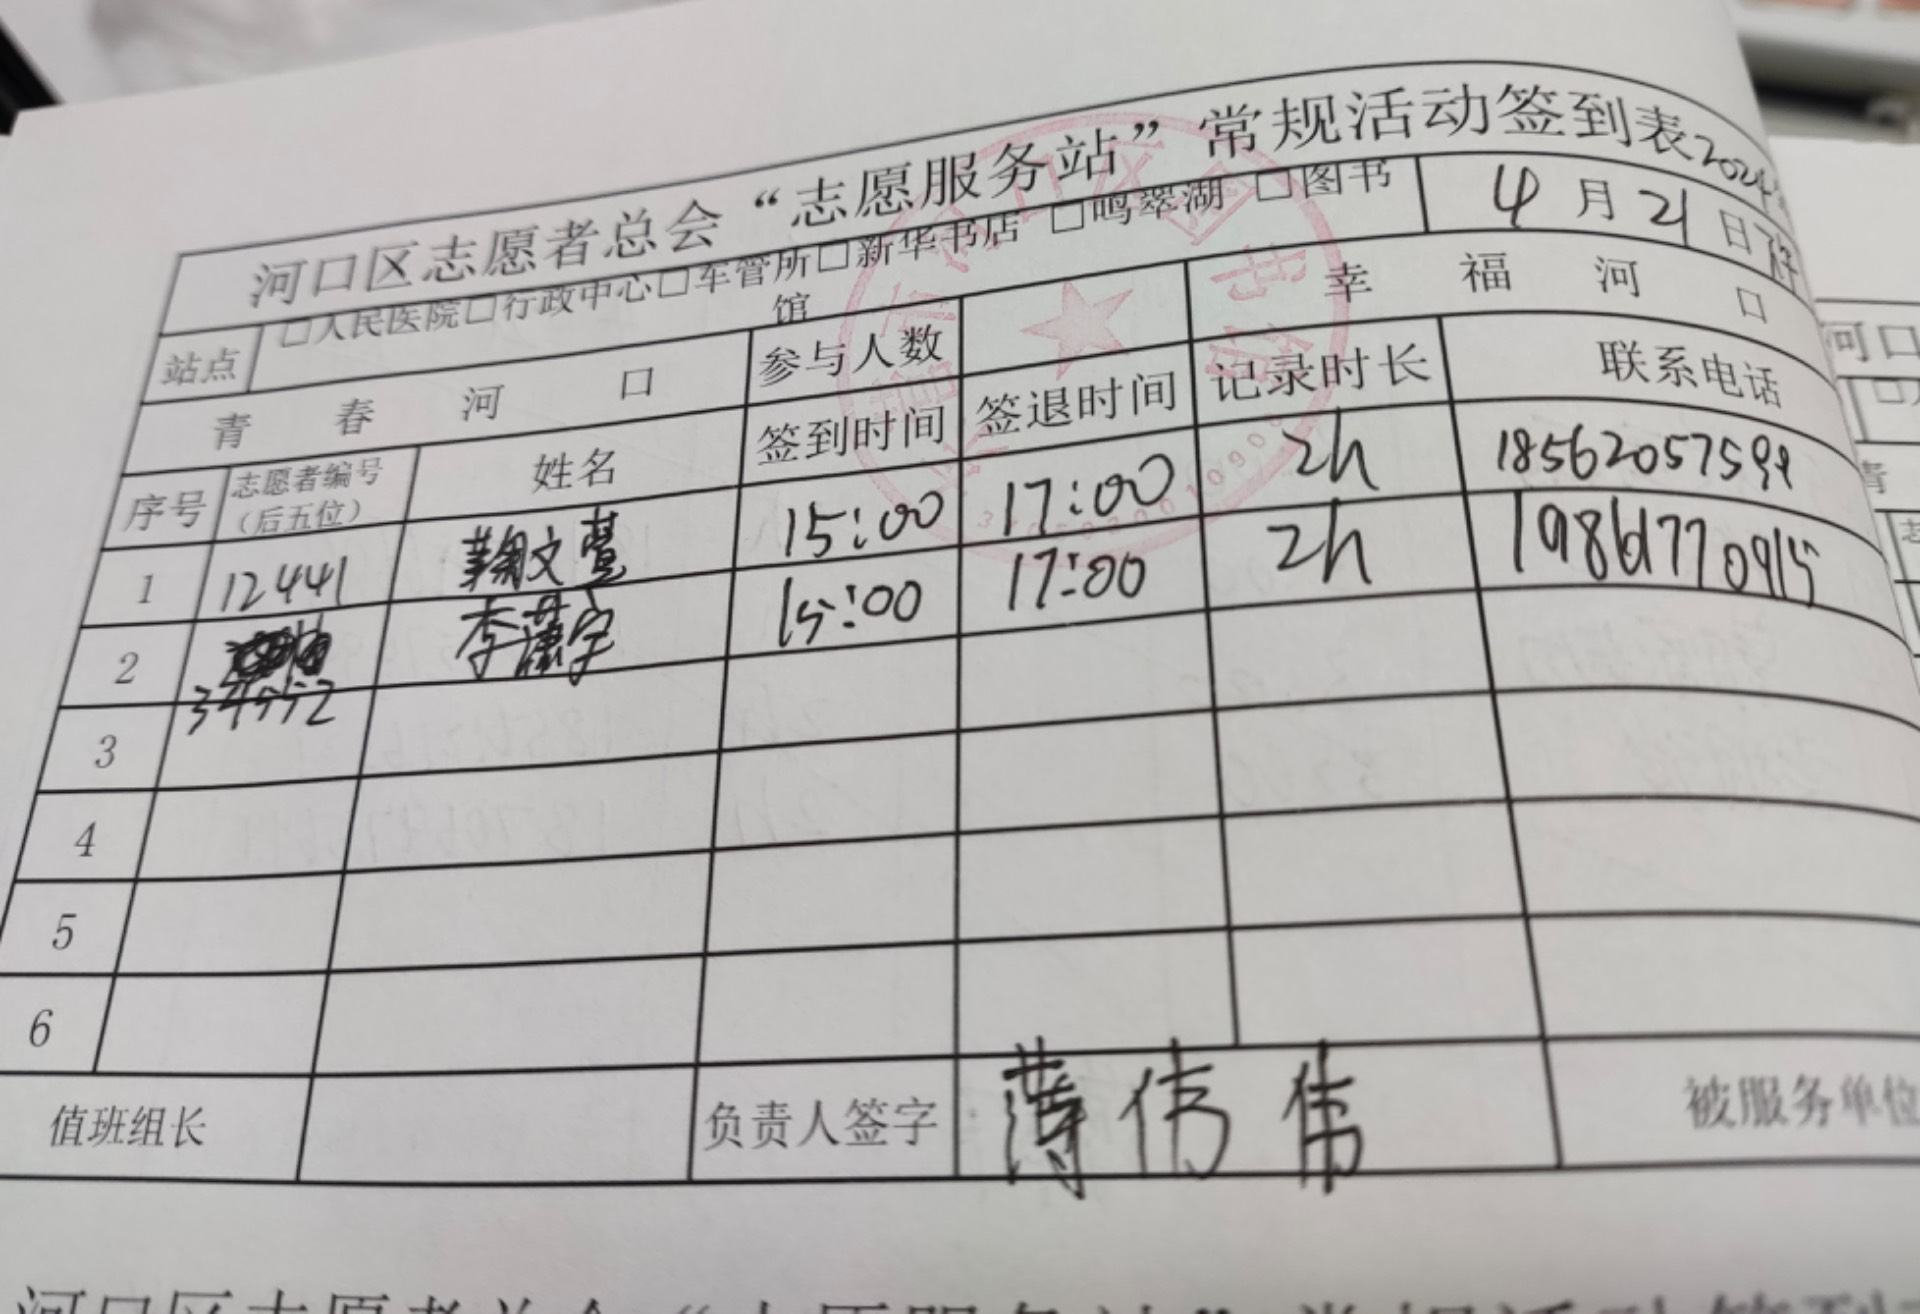 河口区志愿者总会“志愿服务站”常规活动签到表
站点 □人民医院□行政中心□车管所□新华书店 □鸣翠湖 □图书馆 4月21日下午
青春河口 参与人数 幸福河口
序号 志愿者编号（后五位） 姓名 签到时间 签退时间 记录时长 联系电话
1 12441 鞠文萱 15:00 17:00 2h
2 34552 李潇宇 15:00 17:00 2h
3
4
5
6
值班组长 负责人签字 薄伟伟 被服务单位